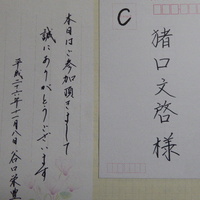 本日はご参加頂きまして
誠にありがとうございます
平成二十六年十一月八日 谷口栄豊
C
猪口文啓様